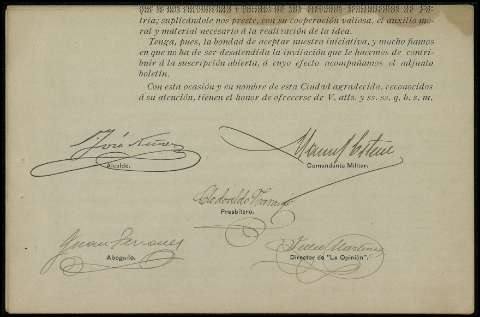 tria; suplicándole nos preste, con su cooperación valiosa, el auxilio mo-
ral y material necesario á la realización de la idea.
Tenga, pues, la bondad de aceptar nuestra iniciativa, y mucho fiamos
en que no ha de ser desatendida la invitación que le hacemos de contri-
buir á la suscripción abierta, á cuyo efecto acompañamos el adjunto
boletín.
Con esta ocasión y en nombre de esta Ciudad agradecida, reconocidos
á su atención, tienen el honor de ofrecerse de V. atts. y ss. ss. q. b. s. m.
José
Alcalde.
Manuel
Comandante Militar.
Clodoaldo
Presbítero.
Juan
Abogado.
Martínez
Director de "La Opinión".